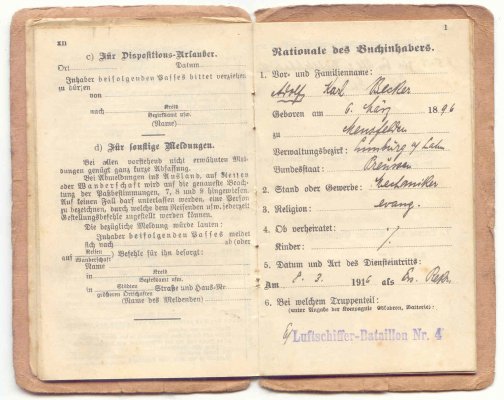 XII
c) Für Dispositions-Urlauber.
Ort Datum
Inhaber beifolgenden Passes bittet verziehen
zu dürfen
von
nach
Kreis
Bezirkskmdo usw.
(Name)
d) Für sonstige Meldungen.
Bei allen vorstehend nicht erwähnten Mel-
dungen genügt ganz kurze Abfassung.
Bei Abmeldungen ins Ausland, auf Reisen
oder Wanderschaft wird auf die genaueste Beach-
tung der Paßbestimmungen, 7, 8 und 9 hingewiesen.
Auf keinen Fall darf unterlassen werden, eine Person
zu bezeichnen, durch welche dem Reisenden usw. jederzeit
Gestellungsbefehle zugestellt werden können.
Die bezügliche Meldung würde lauten:
Inhaber beifolgenden Passes meldet
sich nach ab (oder
auf Reisen Wanderschaft) Befehle für ihn besorgt:
Name
in
Kreis
Bezirkskmdo usw.
in Städten größeren Ortschaften Straße und Haus-Nr
(Name des Meldenden)
1
Nationale des Buchinhabers.
1. Vor- und Familienname:
Adolf Karl Becker
Geboren am 6. März 1896
zu Mensfelden
Verwaltungsbezirk: Limburg a/ Lahn
Bundesstaat: Preussen
2. Stand oder Gewerbe: Mechaniker
3. Religion: evang.
4. Ob verheiratet:
Kinder: ./.
5. Datum und Art des Diensteintritts:
Am 8. 3. 1916 als
6. Bei welchem Truppenteil:
(unter Angabe der Kompagnie, Eskadron, Batterie):
Luftschiffer-Bataillon Nr. 4